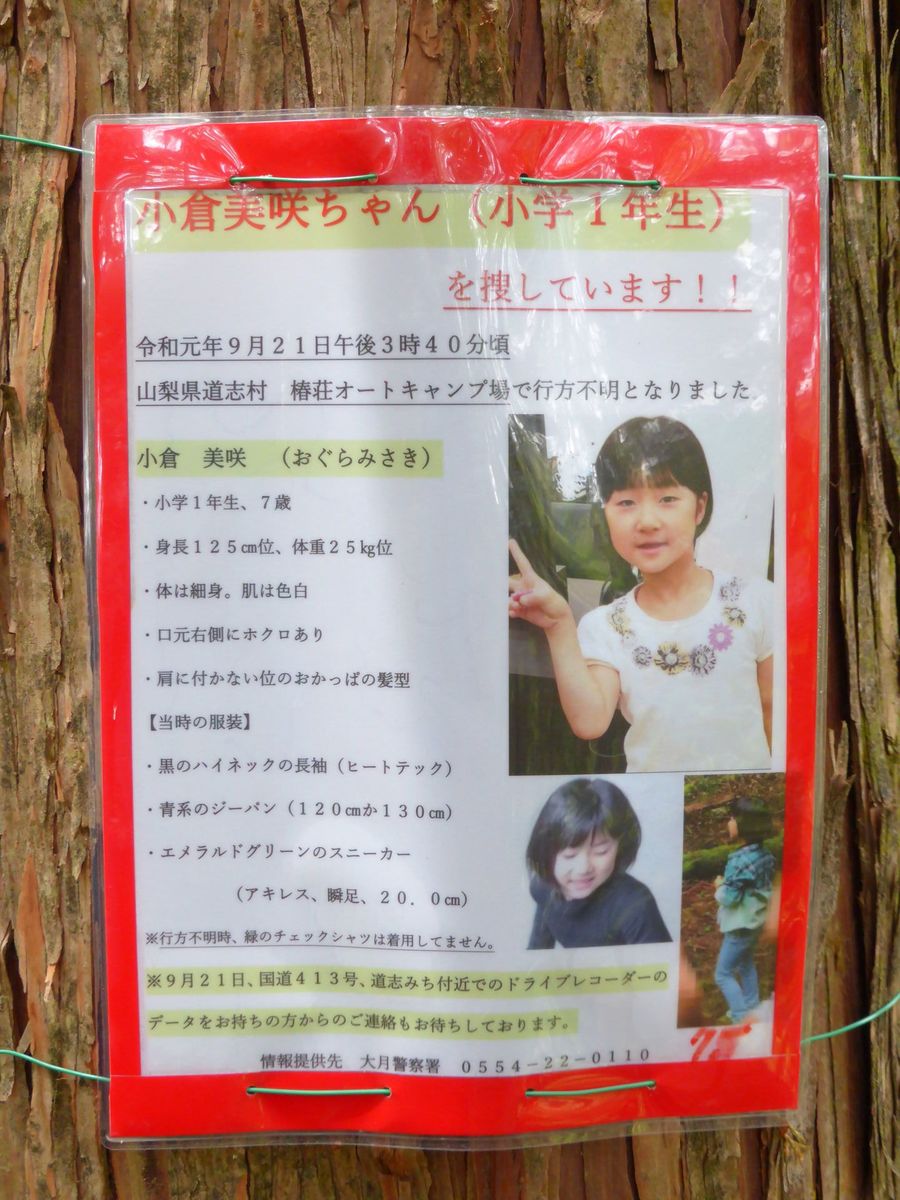 小倉美咲ちゃん（小学１年生）
を捜しています！！
令和元年９月２１日午後３時４０分頃
山梨県道志村　椿荘オートキャンプ場で行方不明となりました
小倉　美咲　（おぐらみさき）
・小学１年生、７歳
・身長１２５㎝位、体重２５㎏位
・体は細身。肌は色白
・口元右側にホクロあり
・肩に付かない位のおかっぱの髪型
【当時の服装】
・黒のハイネックの長袖（ヒートテック）
・青系のジーパン（１２０㎝か１３０㎝）
・エメラルドグリーンのスニーカー
（アキレス、瞬足、２０．０㎝）
※行方不明時、緑のチェックシャツは着用してません。
※９月２１日、国道４１３号、道志みち付近でのドライブレコーダーの
データをお持ちの方からのご連絡もお待ちしております。
情報提供先　大月警察署　０５５４－２２－０１１０